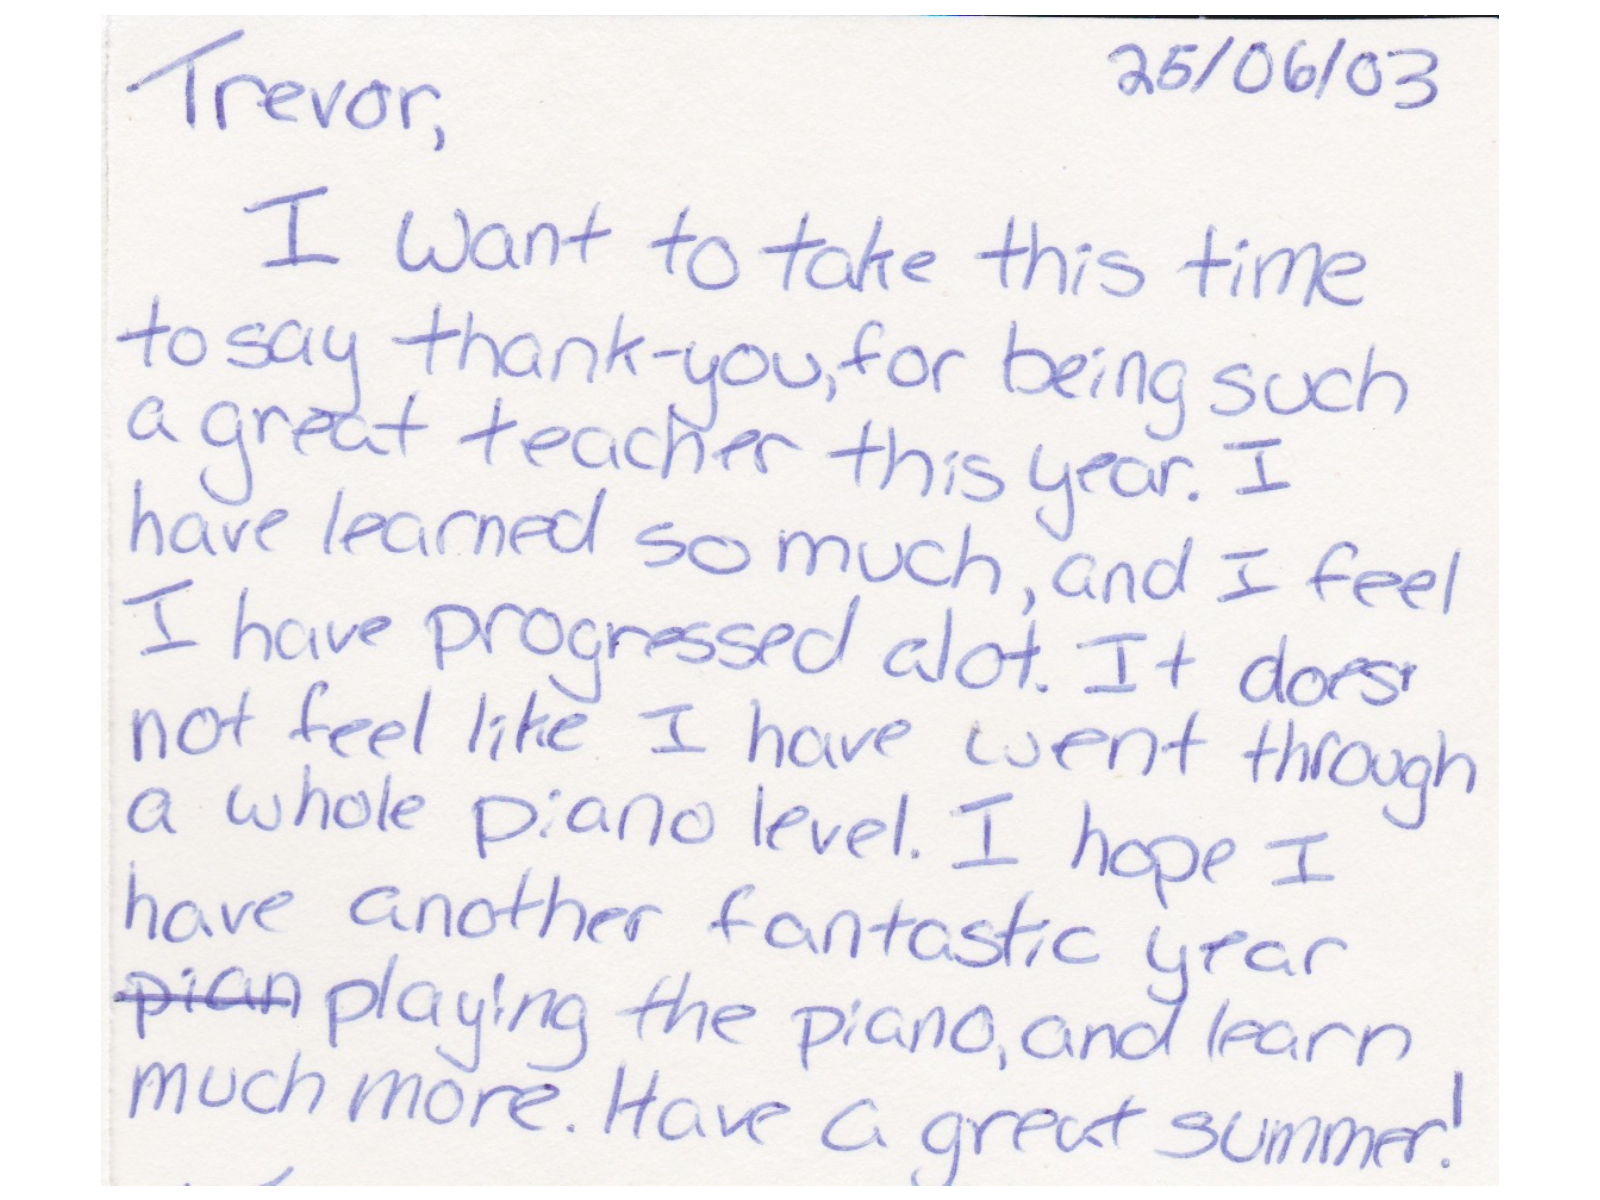 25/06/03
Trevor,
I want to take this time
to say thank-you, for being such
a great teacher this year. I
have learned so much, and I feel
I have progressed alot. It does
not feel like I have went through
a whole piano level. I hope I
have another fantastic year
pian playing the piano, and learn
much more. Have a great summer!